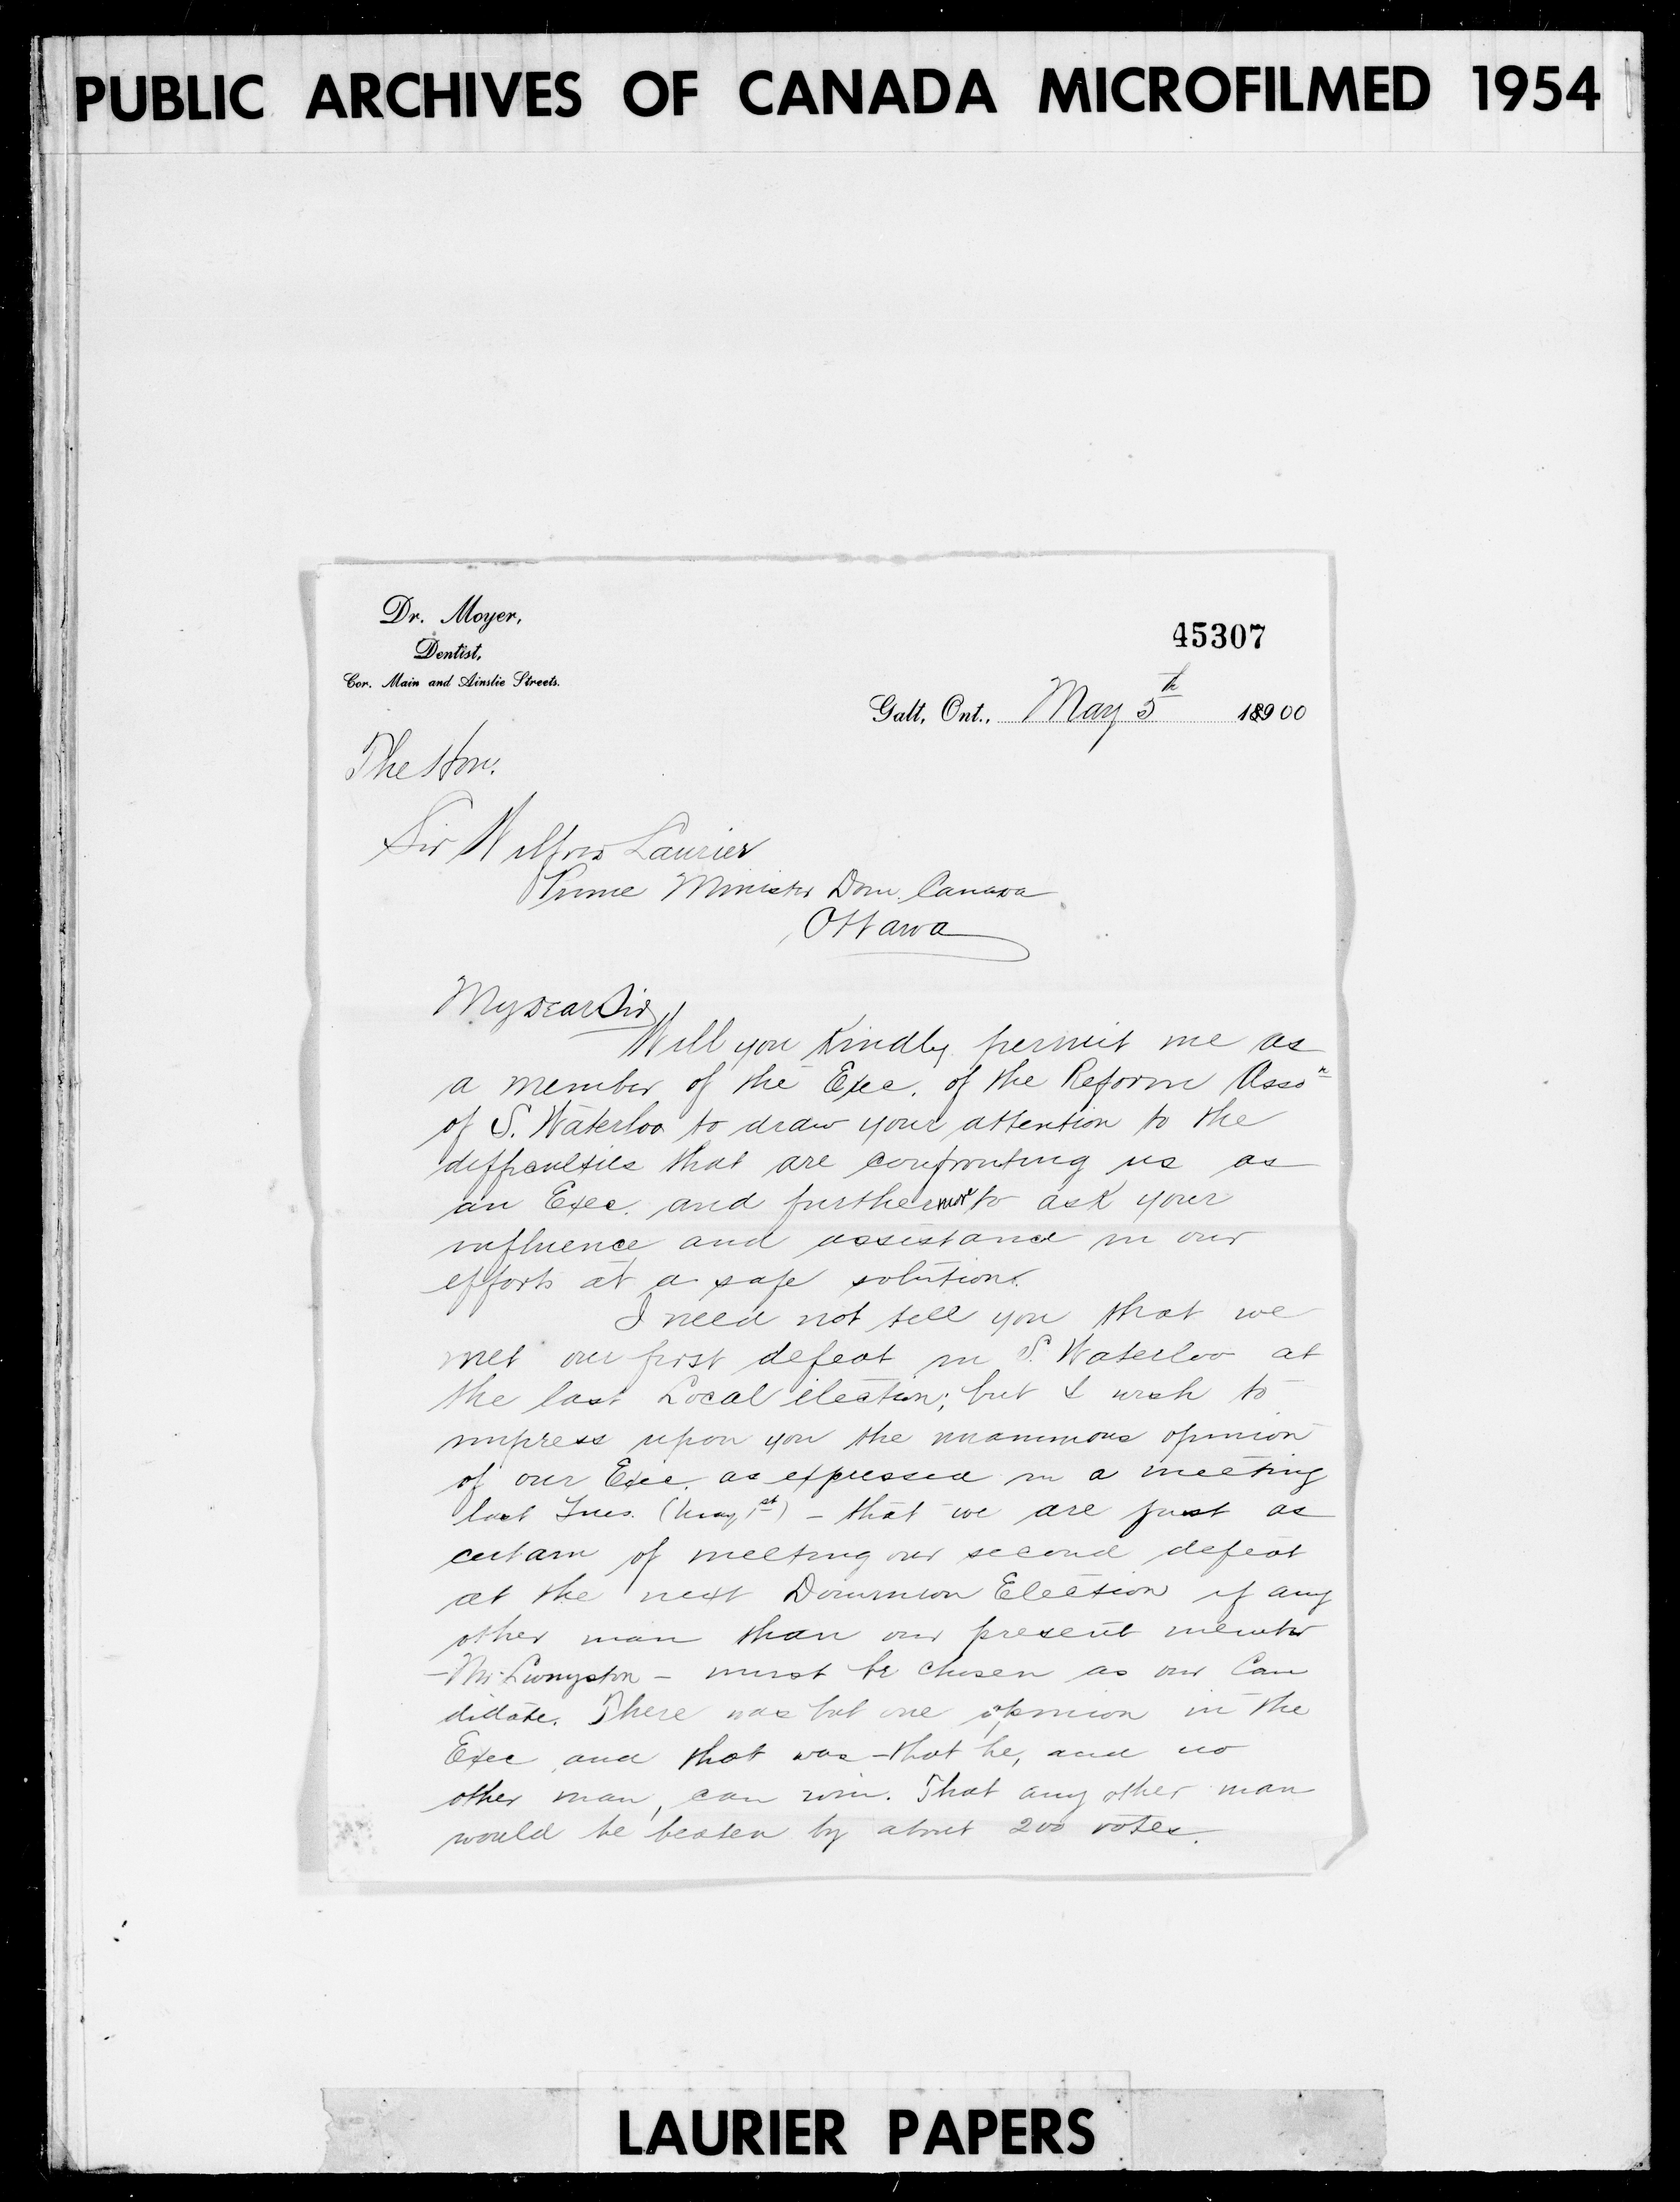 PUBLIC ARCHIVES OF CANADA MICROFILMED 1954
Dr. Moyer,
Dentist,
Cor. Main and Ainslie Streets.
45307
Galt, Ont., May 5th 18900
The Hon.
Sir Wilfrid Laurier
Prime Minister Dom. Canada
Ottawa
My Dear Sir,
Will you kindly permit me as
a member of the Exec. of the Reform Asson
of S. Waterloo to draw your attention to the
difficulties that are confronting us as
an Exec. and furthermore to ask your
influence and assistance in our
efforts at a safe solution.
I need not tell you that we
met our first defeat in S. Waterloo at
the last Local election; but I wish to
impress upon you the unanimous opinion
of our Exec. as expressed in a meeting
last Tues. (May 1st) - that we are just as
certain of meeting our second defeat
at the next Dominion Election if any
other man than our present member
- Mr. Livingston - must be chosen as our Can
didate. There was but one opinion in the
Exec, and that was - that he, and no
other man, can win. That any other man
would be beaten by about 200 votes.
LAURIER PAPERS